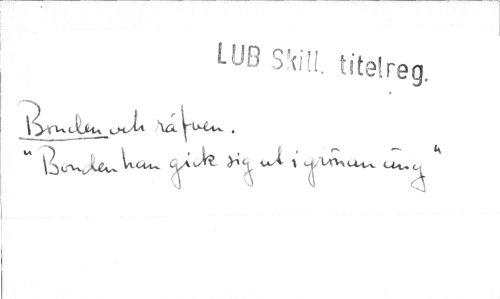 LUB Skill. titelreg.
Bonden och räfven.
"Bonden han gick sig ut i grönan äng"